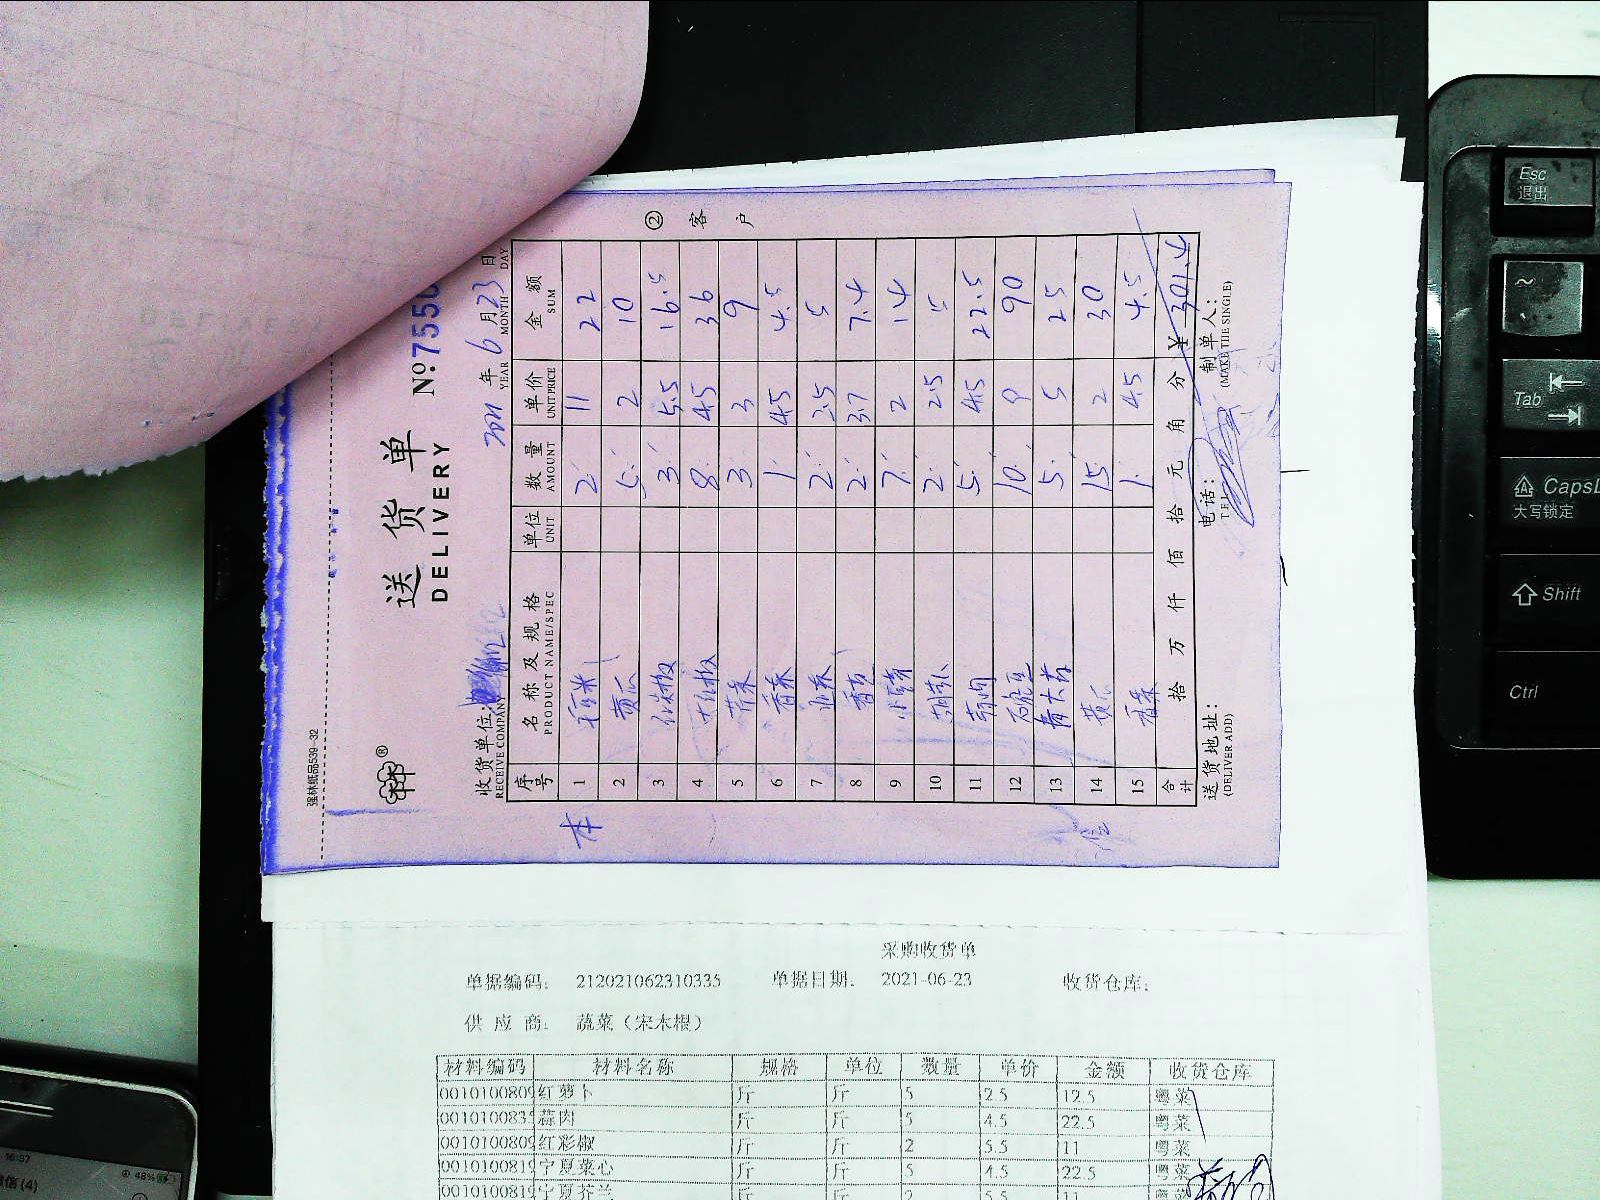 强林纸品539-32
送货单
DELIVERY
№755
② 客户
收货单位:
RECEIVE COMPANY
2021 年 6 月 23 日
YEAR MONTH DAY
序号 名称及规格 单位 数量 单价 金额
PRODUCT NAME/SPEC UNIT AMOUNT UNIT PRICE SUM
1 11 22
2 黄瓜 5 2 10
3 3 5.5 16.5
4 8 4.5 36
5 3 3 9
6 香菜 1 4.5 4.5
7 2 2.5 5
8 2 3.7 7.4
9 7 2 14
10 2 2.5 5
11 5 4.5 22.5
12 10 9 90
13 5 5 25
14 黄瓜 15 2 30
15 香菜 1 4.5 4.5
合计 拾 万 仟 佰 拾 元 角 分 ¥ 301.4
送货地址: 电话: 制单人:
(DELIVER ADD) TEL (MAKE THE SINGLE)
采购收货单
单据编码: 212021062310335 单据日期: 2021-06-23 收货仓库:
供应商: 蔬菜(宋木根)
材料编码 材料名称 规格 单位 数量 单价 金额 收货仓库
0010100809 红萝卜 斤 斤 5 2.5 12.5 粤菜
001010083 蒜肉 斤 斤 5 4.5 22.5 粤菜
0010100809 红彩椒 斤 斤 2 5.5 11 粤菜
0010100819 宁夏菜心 斤 斤 5 4.5 22.5 粤菜
0010100819 宁夏芥兰 斤 斤 2 5.5 11 粤菜
Esc
退出
~
`
Tab
CapsL
大写锁定
Shift
Ctrl
16:37
48%
信(4)